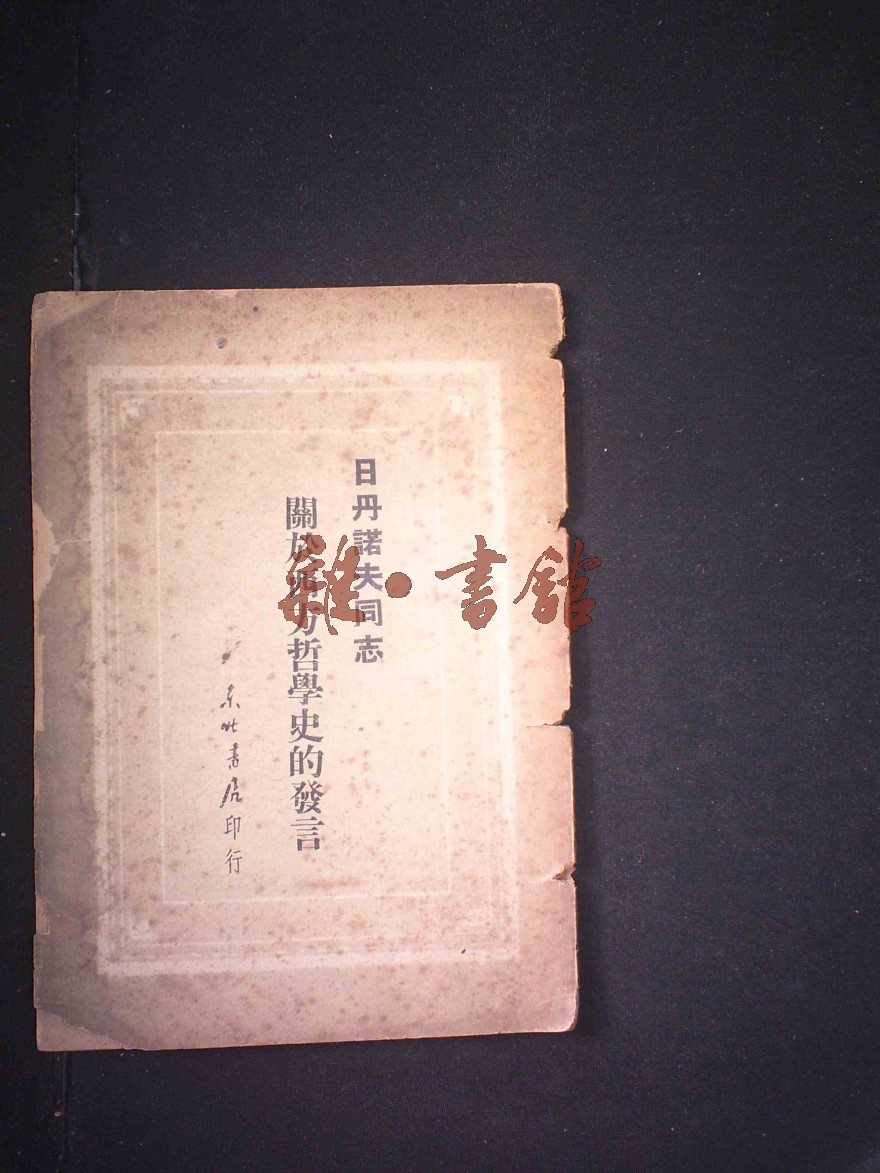 日丹諾夫同志
關於西方哲學史的發言
東北書店印行
雜·書館